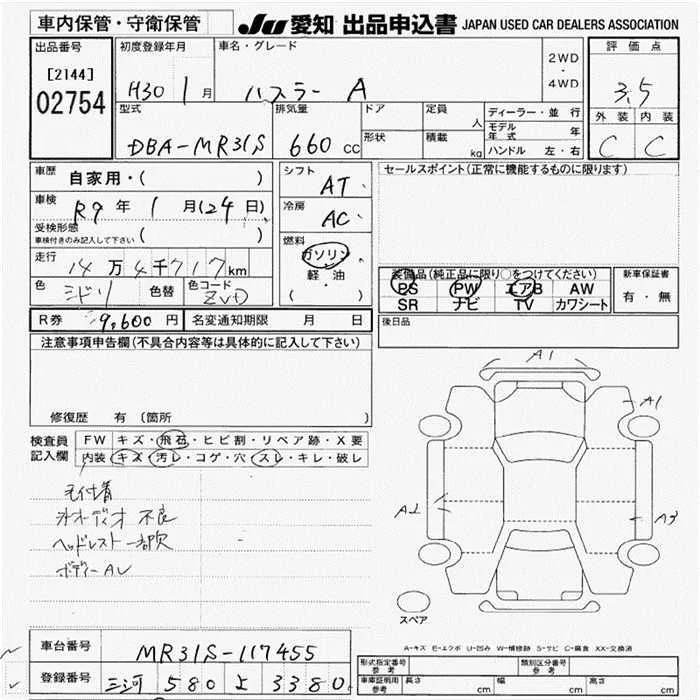 車内保管・守衛保管
JU 愛知 出品申込書 JAPAN USED CAR DEALERS ASSOCIATION
出品番号
[2144]
02754
初度登録年月
H30 1 月
車名・グレード
ハスラー A
2WD
・
4WD
評価点
3.5
外装 内装
C C
型式
DBA-MR31S
排気量
660 CC
ドア
形状
定員
人
積載
kg
ディーラー・並 行
モデル年式 年
ハンドル 左・右
車歴
自家用・( )
車検
R9 年 1 月(24日)
受検形態
車検付きのみ記入して下さい ( )
走行
14万4千717km
色
ミドリ
色替
色コード
ZVD
シフト
AT
冷房
AC
燃料
ガソリン
軽・油
( )
セールスポイント(正常に機能するものに限ります)
装備品(純正品に限り○をつけてください)
PS PW エアB AW
SR ナビ TV カワシート
新車保証書
有・無
R券 9,600 円
名変通知期限 月 日
後日品
注意事項申告欄(不具合内容等は具体的に記入して下さい)
修復歴 有 (箇所 )
検査員
記入欄
FW キズ・飛石・ヒビ割・リペア跡・X要
内装 キズ・汚レ・コゲ・穴・スレ・キレ・破レ
毛付着
オーディオ 不良
ヘッドレスト 一部欠
ボディーAU
A1
A1
A2
A3
スペア
A-キズ E-エクボ U-凹み W-補修跡 S-サビ C-腐食 XX-交換済
車台番号
MR31S-117455
登録番号
三河 580 よ 3380
形式指定番号
参考
類別区分番号
参考
車庫証明用
参考
長さ cm 幅 cm 高さ cm